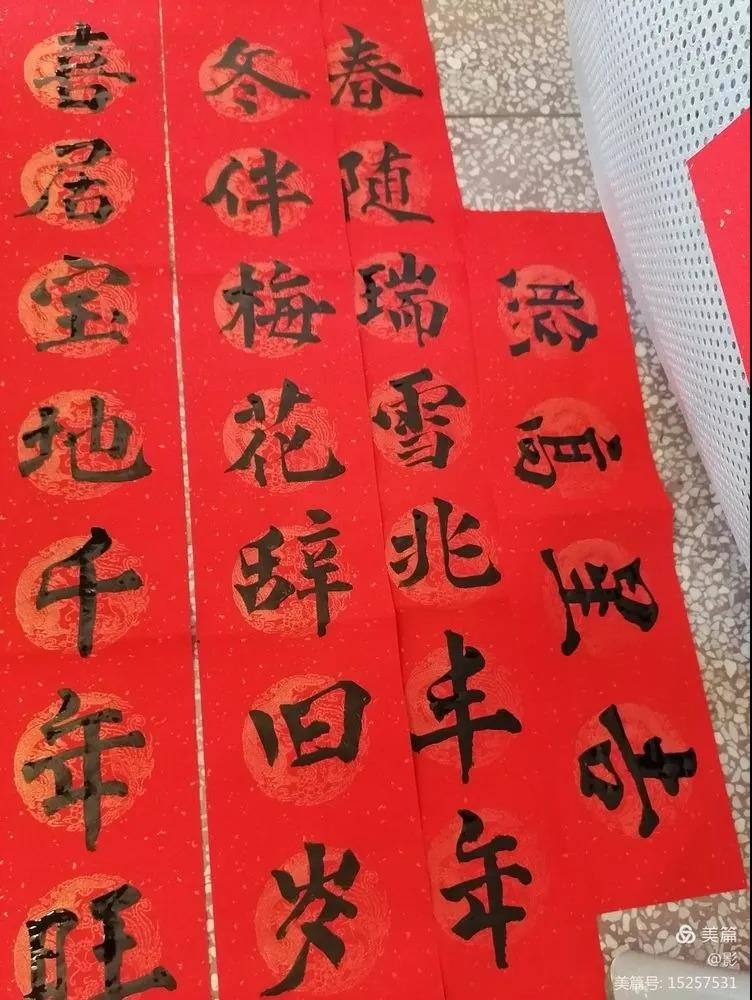 吉星高照
春随瑞雪兆丰年
冬伴梅花辞旧岁
喜居宝地千年旺
美篇
@影
美篇号: 15257531